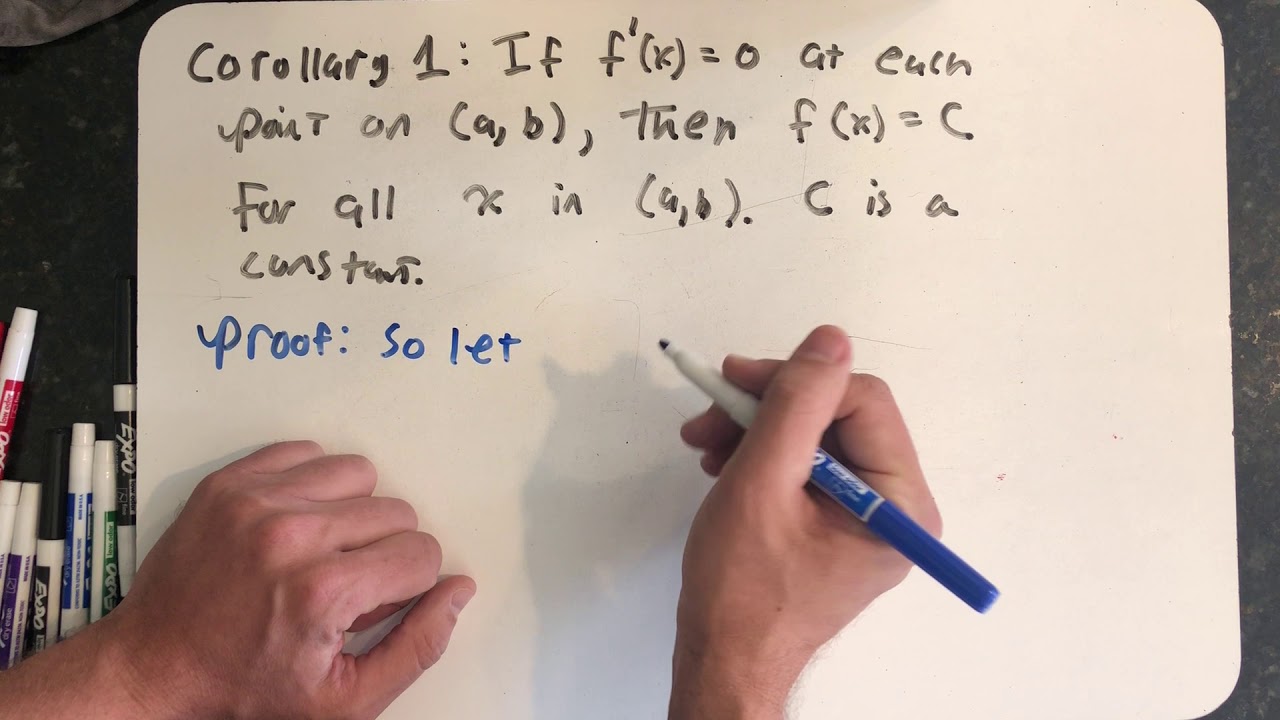 Corollary 1: If f'(x) = 0 at each
point on (a, b), then f(x) = C
for all x in (a,b). C is a
constant.
proof: so let
EXPO
EXPO
EXPO